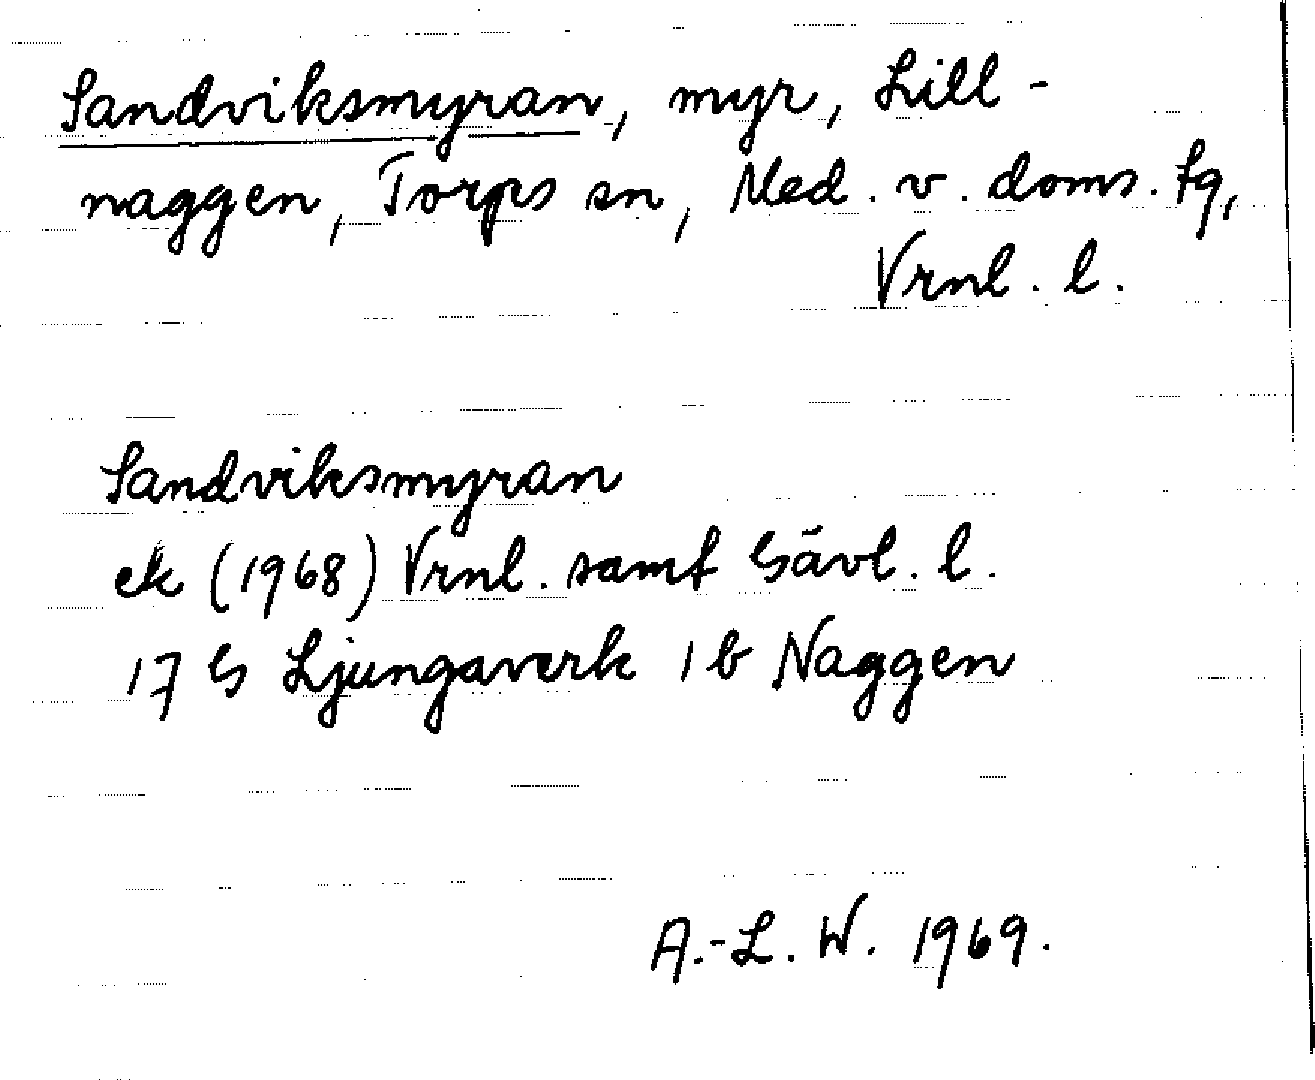 Sandviksmyran, myr, Lill-
naggen, Torps sn, Med. v. doms. tg,
Vrnl. l.
Sandviksmyran
ek (1968) Vrnl. samt Gävl. l.
17 G Ljungaverk 1 b Naggen
A.-L. W. 1969.